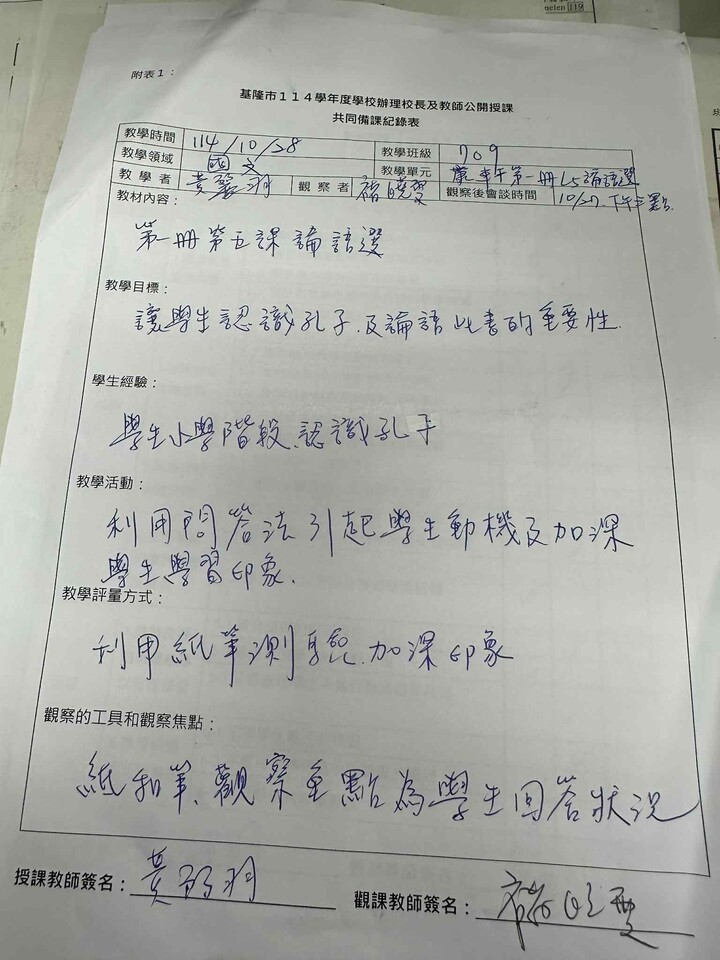 附表1：
基隆市114學年度學校辦理校長及教師公開授課
共同備課紀錄表
教學時間 114/10/28 教學班級 709
教學領域 國文 教學單元 康軒第一冊L5論語選
教學者 黃 羽 觀察者 曉雯 觀察後會談時間 10/27.下午三點
教材內容：
第一冊第五課論語選
教學目標：
讓學生認識孔子.及論語此書的重要性.
學生經驗：
學生小學階段.認識孔子
教學活動：
利用問答法引起學生動機及加深
學生學習印象.
教學評量方式：
利用紙筆測驗.加深印象
觀察的工具和觀察焦點：
紙和筆、觀察重點為學生回答狀況
授課教師簽名：黃 羽
觀課教師簽名：